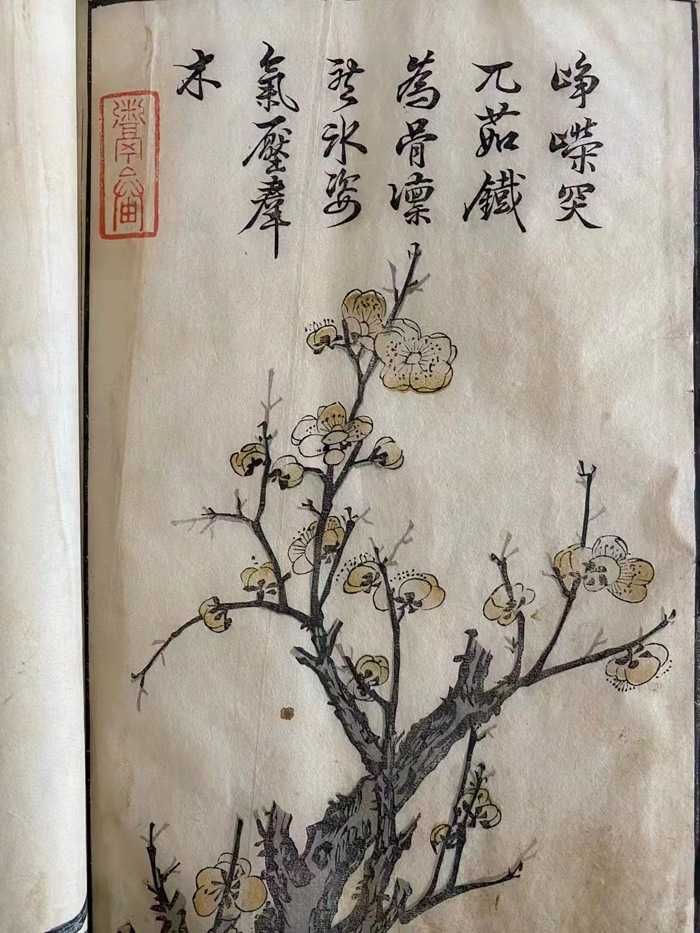 崢嶸突
兀茹鐵
為骨凜
然冰姿
氣壓羣
木